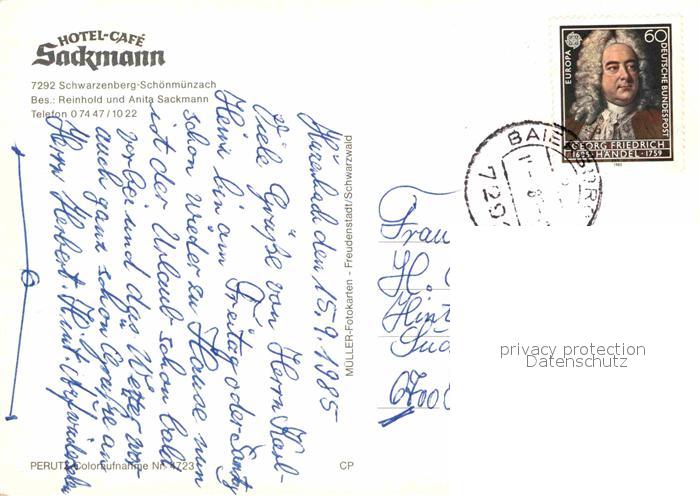 HOTEL-CAFÉ
Sackmann
7292 Schwarzenberg-Schönmünzach
Bes.: Reinhold und Anita Sackmann
Telefon 0 74 47 / 10 22
den 15.9.1985
Viele Grüße von Herrn Karl-
Heinz bin am Freitag oder Samstg
schon wieder zu Hause nun
ist der Urlaub schon bald
vorbei und das Wetter war
auch ganz schön Grüße an
Herrn Herbert.
PERUTZ-Coloraufnahme Nr. 4723
CP
MÜLLER-Fotokarten - Freudenstadt/Schwarzwald
EUROPA
60
DEUTSCHE BUNDESPOST
GEORG FRIEDRICH
1685 HÄNDEL 1759
BAIE
729
Frau
H.
Hint
privacy protection
Datenschutz